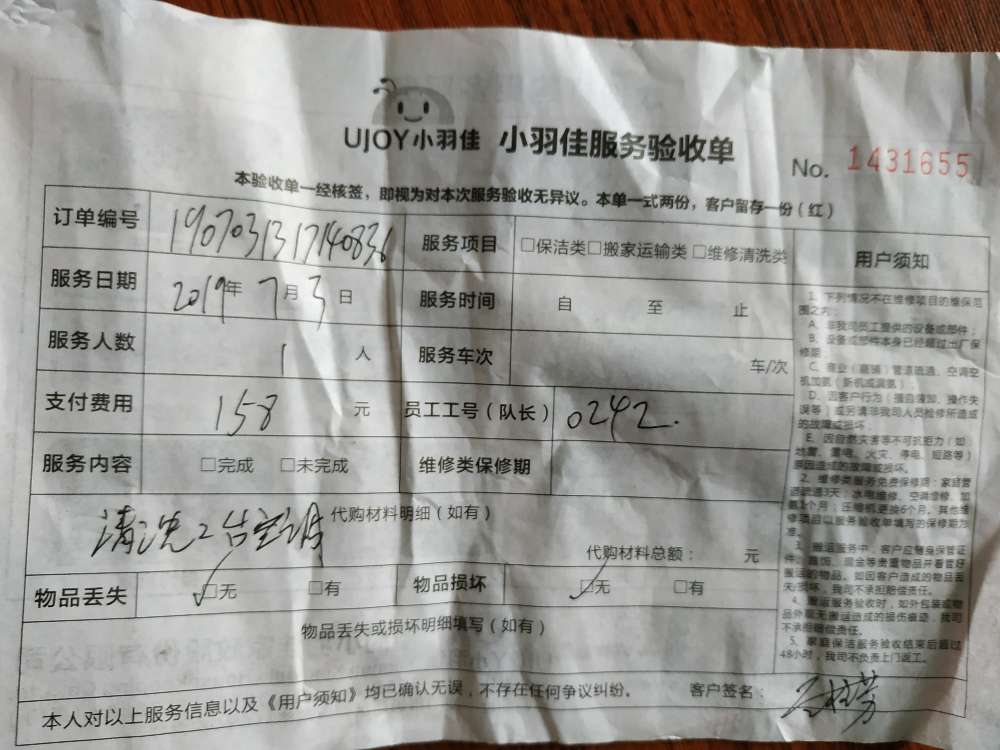 UJOY小羽佳 小羽佳服务验收单 No. 1431655
本验收单一经核签，即视为对本次服务验收无异议。本单一式两份，客户留存一份（红）
订单编号 190703131740836 服务项目 □保洁类□搬家运输类 □维修清洗类
服务日期 2019年7月3日 服务时间 自 至 止
服务人数 1 人 服务车次 车/次
支付费用 158 元 员工工号（队长） 0242.
服务内容 □完成 □未完成 维修类保修期
代购材料明细（如有）
清洗2台空调
代购材料总额： 元
物品丢失 ☑无 □有 物品损坏 ☑无 □有
物品丢失或损坏明细填写（如有）
本人对以上服务信息以及《用户须知》均已确认无误，不存在任何争议纠纷。 客户签名：
用户须知
1、下列情况不在维修项目的维保范
围之内：
A、非我司员工提供的设备或部件；
B、设备或部件本身已经超过出厂保
修期；
C、商业（商铺）管道疏通、空调空
机加氨（新机或漏氨）；
D、因客户行为（擅自液卸、操作失
误等）或另请非我司人员检修所造成
的故障或损坏；
E、因自然灾害等不可抗距力（如
地震、雷电、火灾、停电、短路等）
原因造成的故障或损坏。
2、维修类服务免费保修期：家庭管
道疏通3天；水电维修、空调维修、加
氨1个月；压缩机更换6个月。其他维
修项目以服务验收单填写的保修期为
准。
3、搬运服务中，客户应随身保管证
件、首饰、现金等贵重物品并看管好
搬运的物品。如因客户造成的物品丢
失/损坏，我司不承担赔偿责任。
4、搬运服务验收时，如外包装或物
品外观无搬运造成的损伤痕迹，我司
不承担赔偿责任。
5、家庭保洁服务验收结束后超过
48小时，我司不负责上门返工。